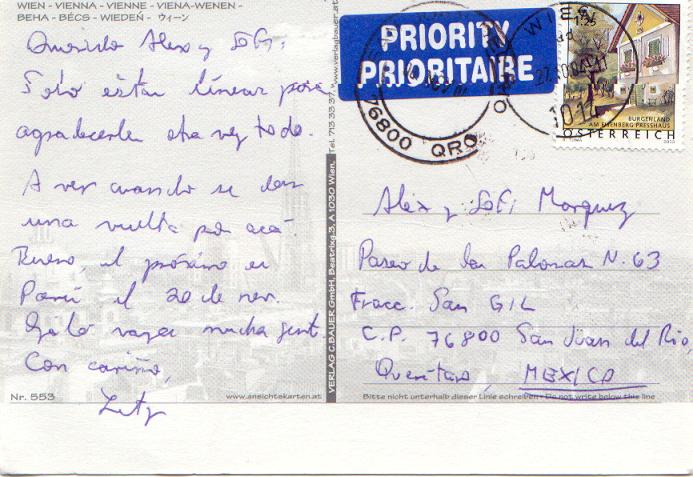 WIEN - VIENNA - VIENNE - VIENA-WENEN -
BEHA - BÉCS - WIEDEŃ - ウィーン
Querido Alex y Sofi:
Solo estas líneas para
agradecerles otra vez todo.
A ver cuando se dan
una vuelta por acá.
Bueno, el próximo es
París el 20 de nov.
Ojalá vaya mucha gente
Con cariño,
Nr. 553
www.ansichtskarten.at
VERLAG C.BAUER GmbH, Beatrixg.3, A 1030 Wien, Tel. 713 33 37, www.verlagbauer.at
PRIORITY
PRIORITAIRE
76800 QRO
WIEN
1014
BURGENLAND
AM EISENBERG PRESSHAUS
ÖSTERREICH
Alex y Sofi Marquez
Paseo de las Palomas N. 63
Fracc. San GIL
C.P. 76800 San Juan del Rio,
Querétaro, MEXICO
Bitte nicht unterhalb dieser Linie schreiben - Do not write below this line